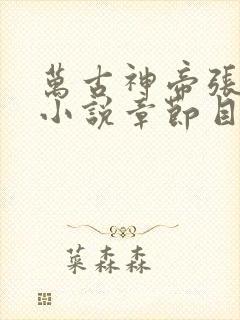 萬古神帝張
小說章節目
葉森森